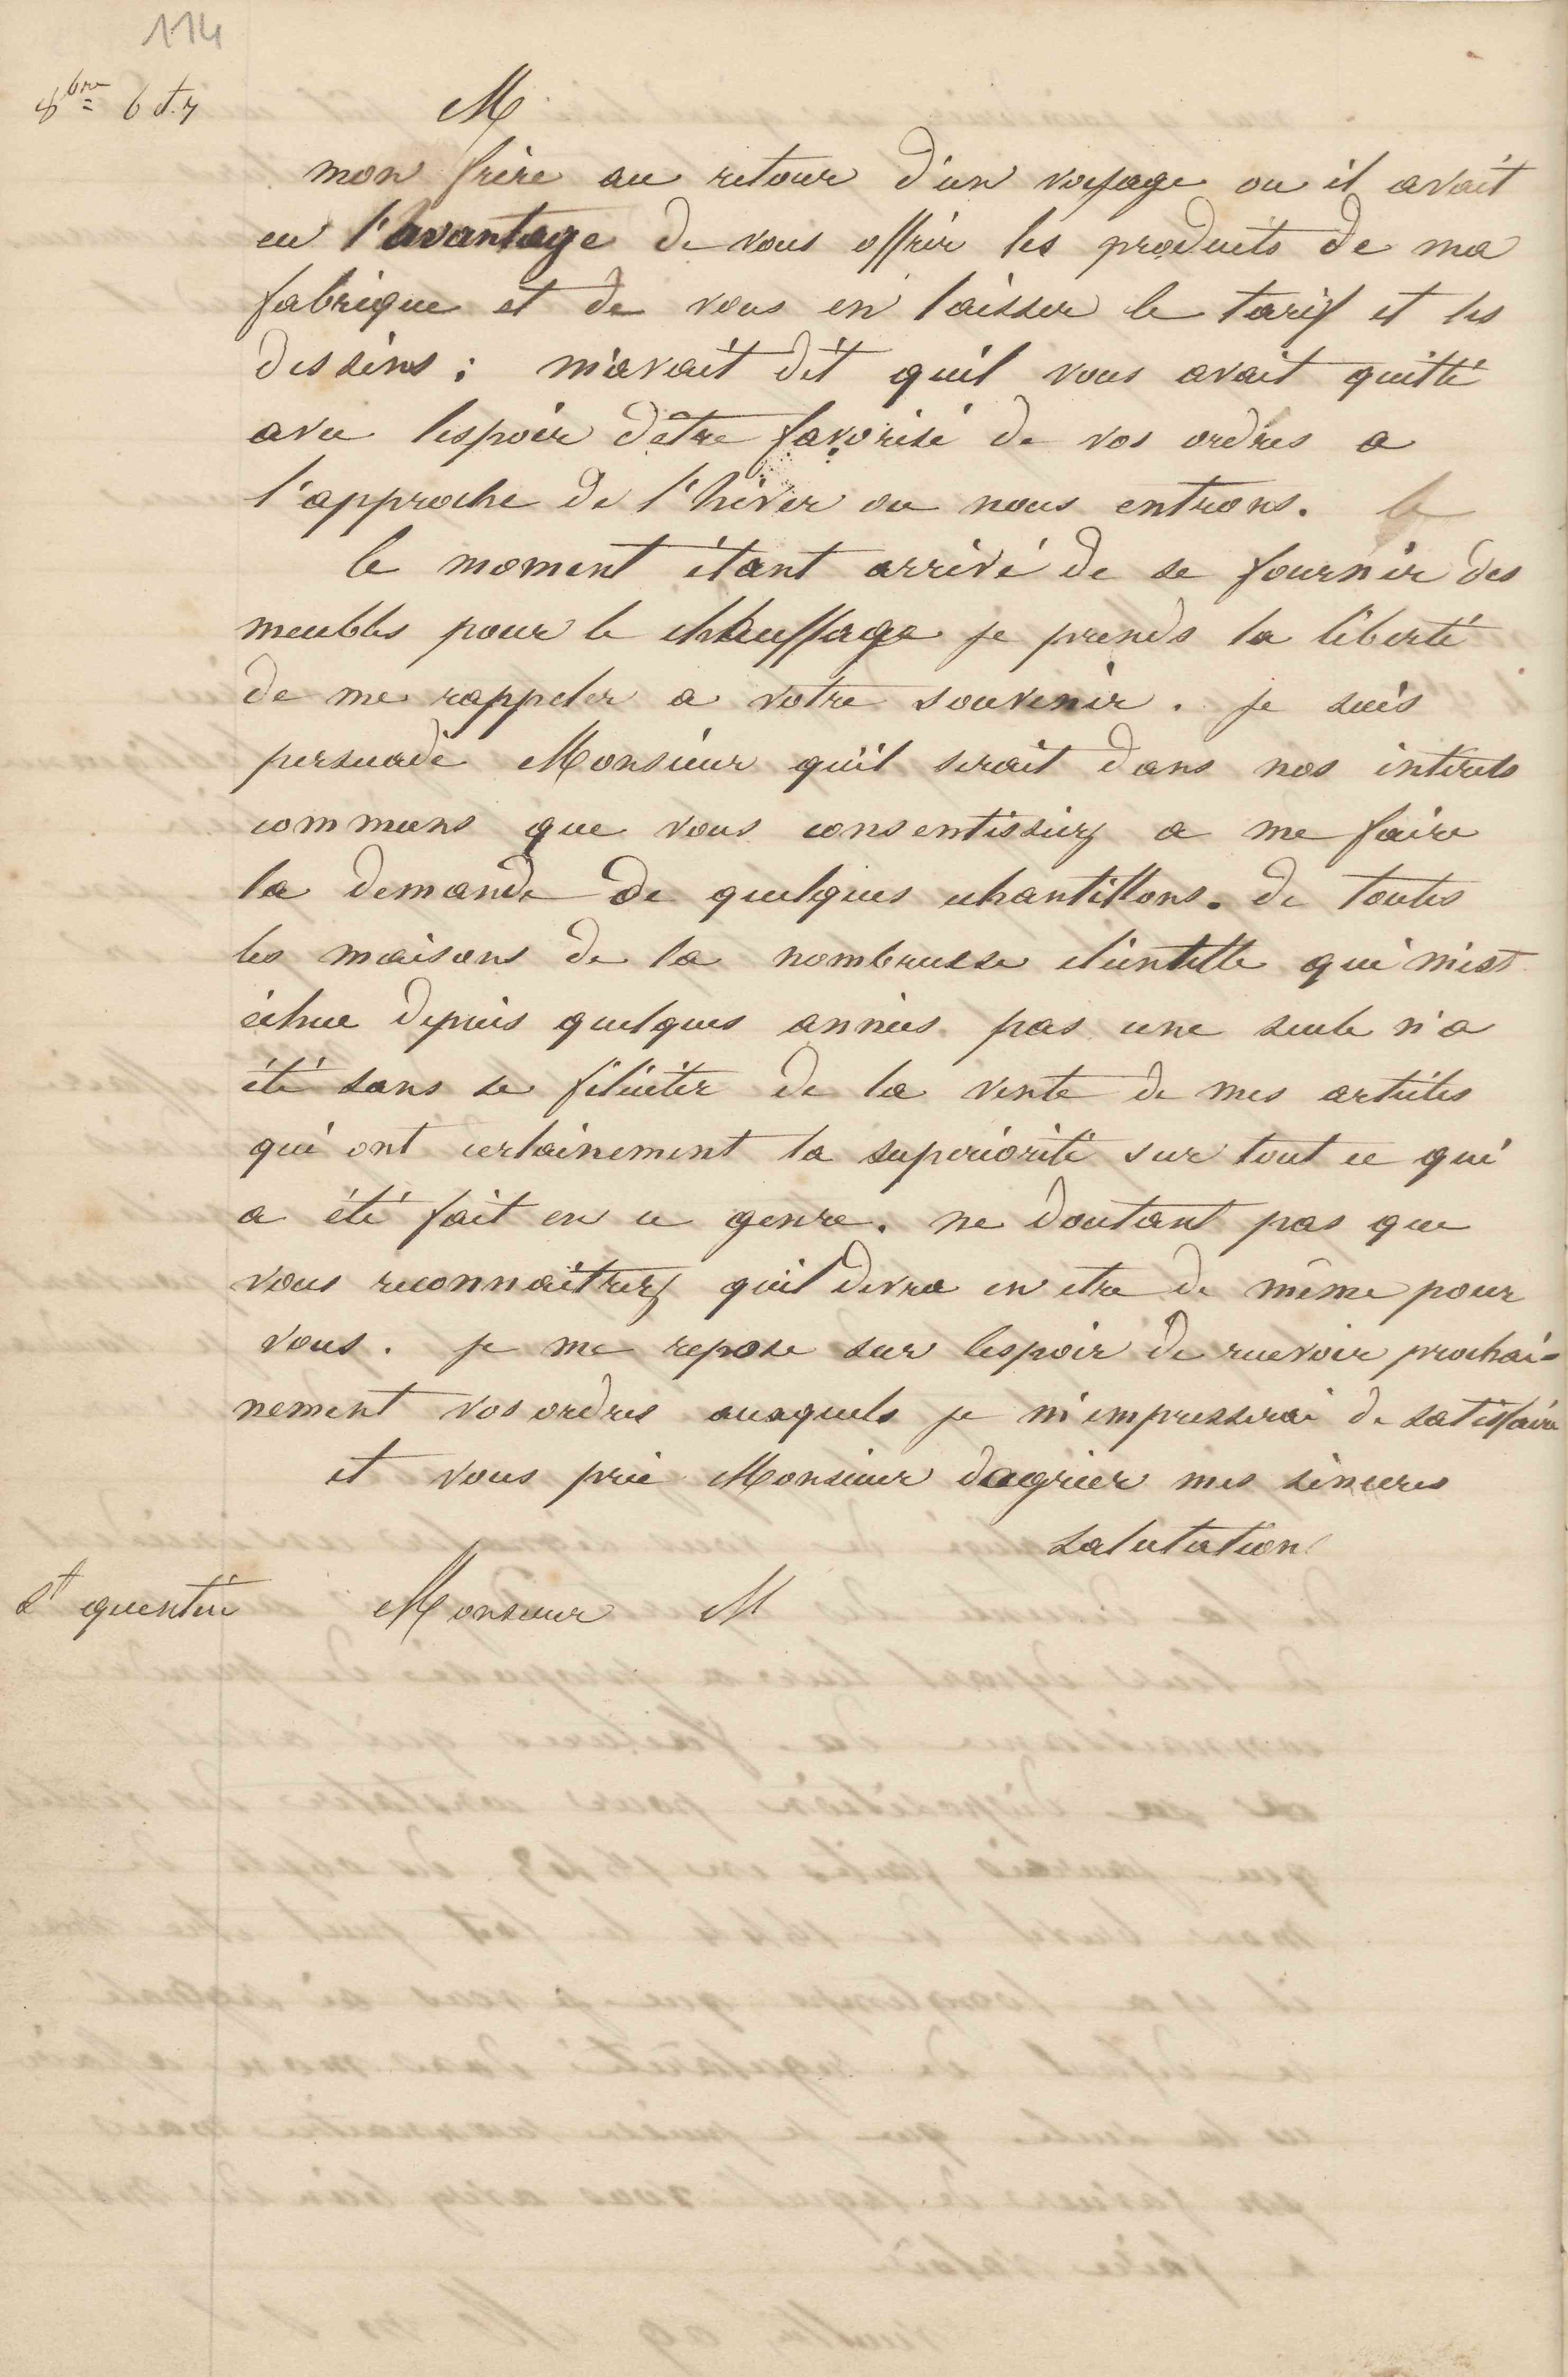 114
8bre 6 et 7
M
mon frère au retour d'un voyage ou il avait
eu l'avantage de vous offrir les produits de ma
fabrique et de vous en laisser le tarif et les
dessins ; m'avait dit qu'il vous avait quitté
avec l'espoir d'être favorisé de vos ordres a
l'approche de l'hiver ou nous entrons. le
le moment étant arrivé de se fournir des
meubles pour le chauffage je prends la liberté
de me rappeler a votre souvenir. je suis
persuadé Monsieur qu'il serait dans nos interets
communs que vous consentissiez a me faire
la demande de quelques echantillons. de toutes
les maisons de la nombreuse clientelle qui m'est
échue depuis quelques années pas une seule n'a
été sans se féliciter de la vente de mes articles
qui ont certainement la superiorité sur tout ce qui
a été fait en ce genre. ne doutant pas que
vous reconnaitrez qu'il devra en etre de même pour
vous. je me repose sur lespoir de recevoir prochai-
nement vos ordres auxquels je m'empresserai de satisfaire
et vous prie Monsieur dagréer mes sinceres
salutations
St quentin Monsieur M